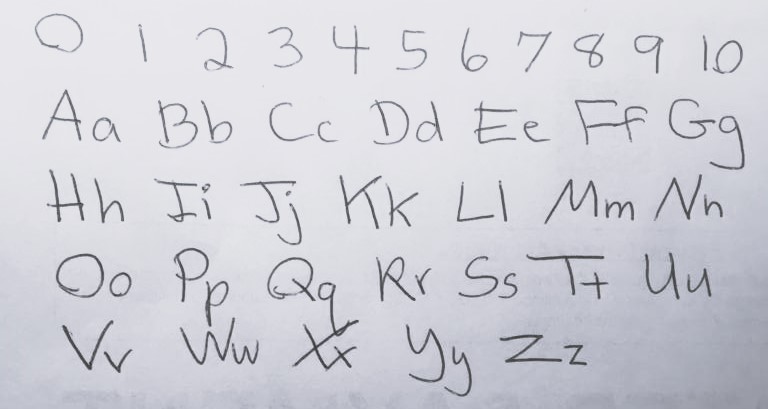 0 1 2 3 4 5 6 7 8 9 10
Aa Bb Cc Dd Ee Ff Gg
Hh Ii Jj Kk Ll Mm Nn
Oo Pp Qq Rr Ss Tt Uu
Vv Ww Xx Yy Zz